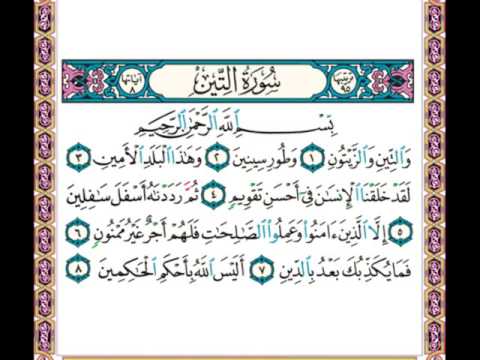 ترتيبها ٩٥ سُورَةُ التِّينِ آياتها ٨
بِسْمِ اللَّهِ الرَّحْمَٰنِ الرَّحِيمِ
وَٱلتِّينِ وَٱلزَّيْتُونِ ١ وَطُورِ سِينِينَ ٢ وَهَٰذَا ٱلْبَلَدِ ٱلْأَمِينِ ٣
لَقَدْ خَلَقْنَا ٱلْإِنسَٰنَ فِىٓ أَحْسَنِ تَقْوِيمٍ ٤ ثُمَّ رَدَدْنَٰهُ أَسْفَلَ سَٰفِلِينَ
٥ إِلَّا ٱلَّذِينَ ءَامَنُوا۟ وَعَمِلُوا۟ ٱلصَّٰلِحَٰتِ فَلَهُمْ أَجْرٌ غَيْرُ مَمْنُونٍ ٦
فَمَا يُكَذِّبُكَ بَعْدُ بِٱلدِّينِ ٧ أَلَيْسَ ٱللَّهُ بِأَحْكَمِ ٱلْحَٰكِمِينَ ٨